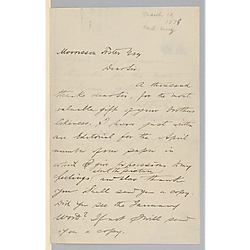 March 12
1878
Morrison Foster Esq
Dear Sir
A thousand
thanks dear Sir, for the most
valuable gift of your brothers
likeness. I have just sent in
an Editorial for the April
number of our paper in
which I give expression to my
feelings, and also thank
you. Shall send you a copy.
Did you see the January
Word? If not I will send
you a copy.